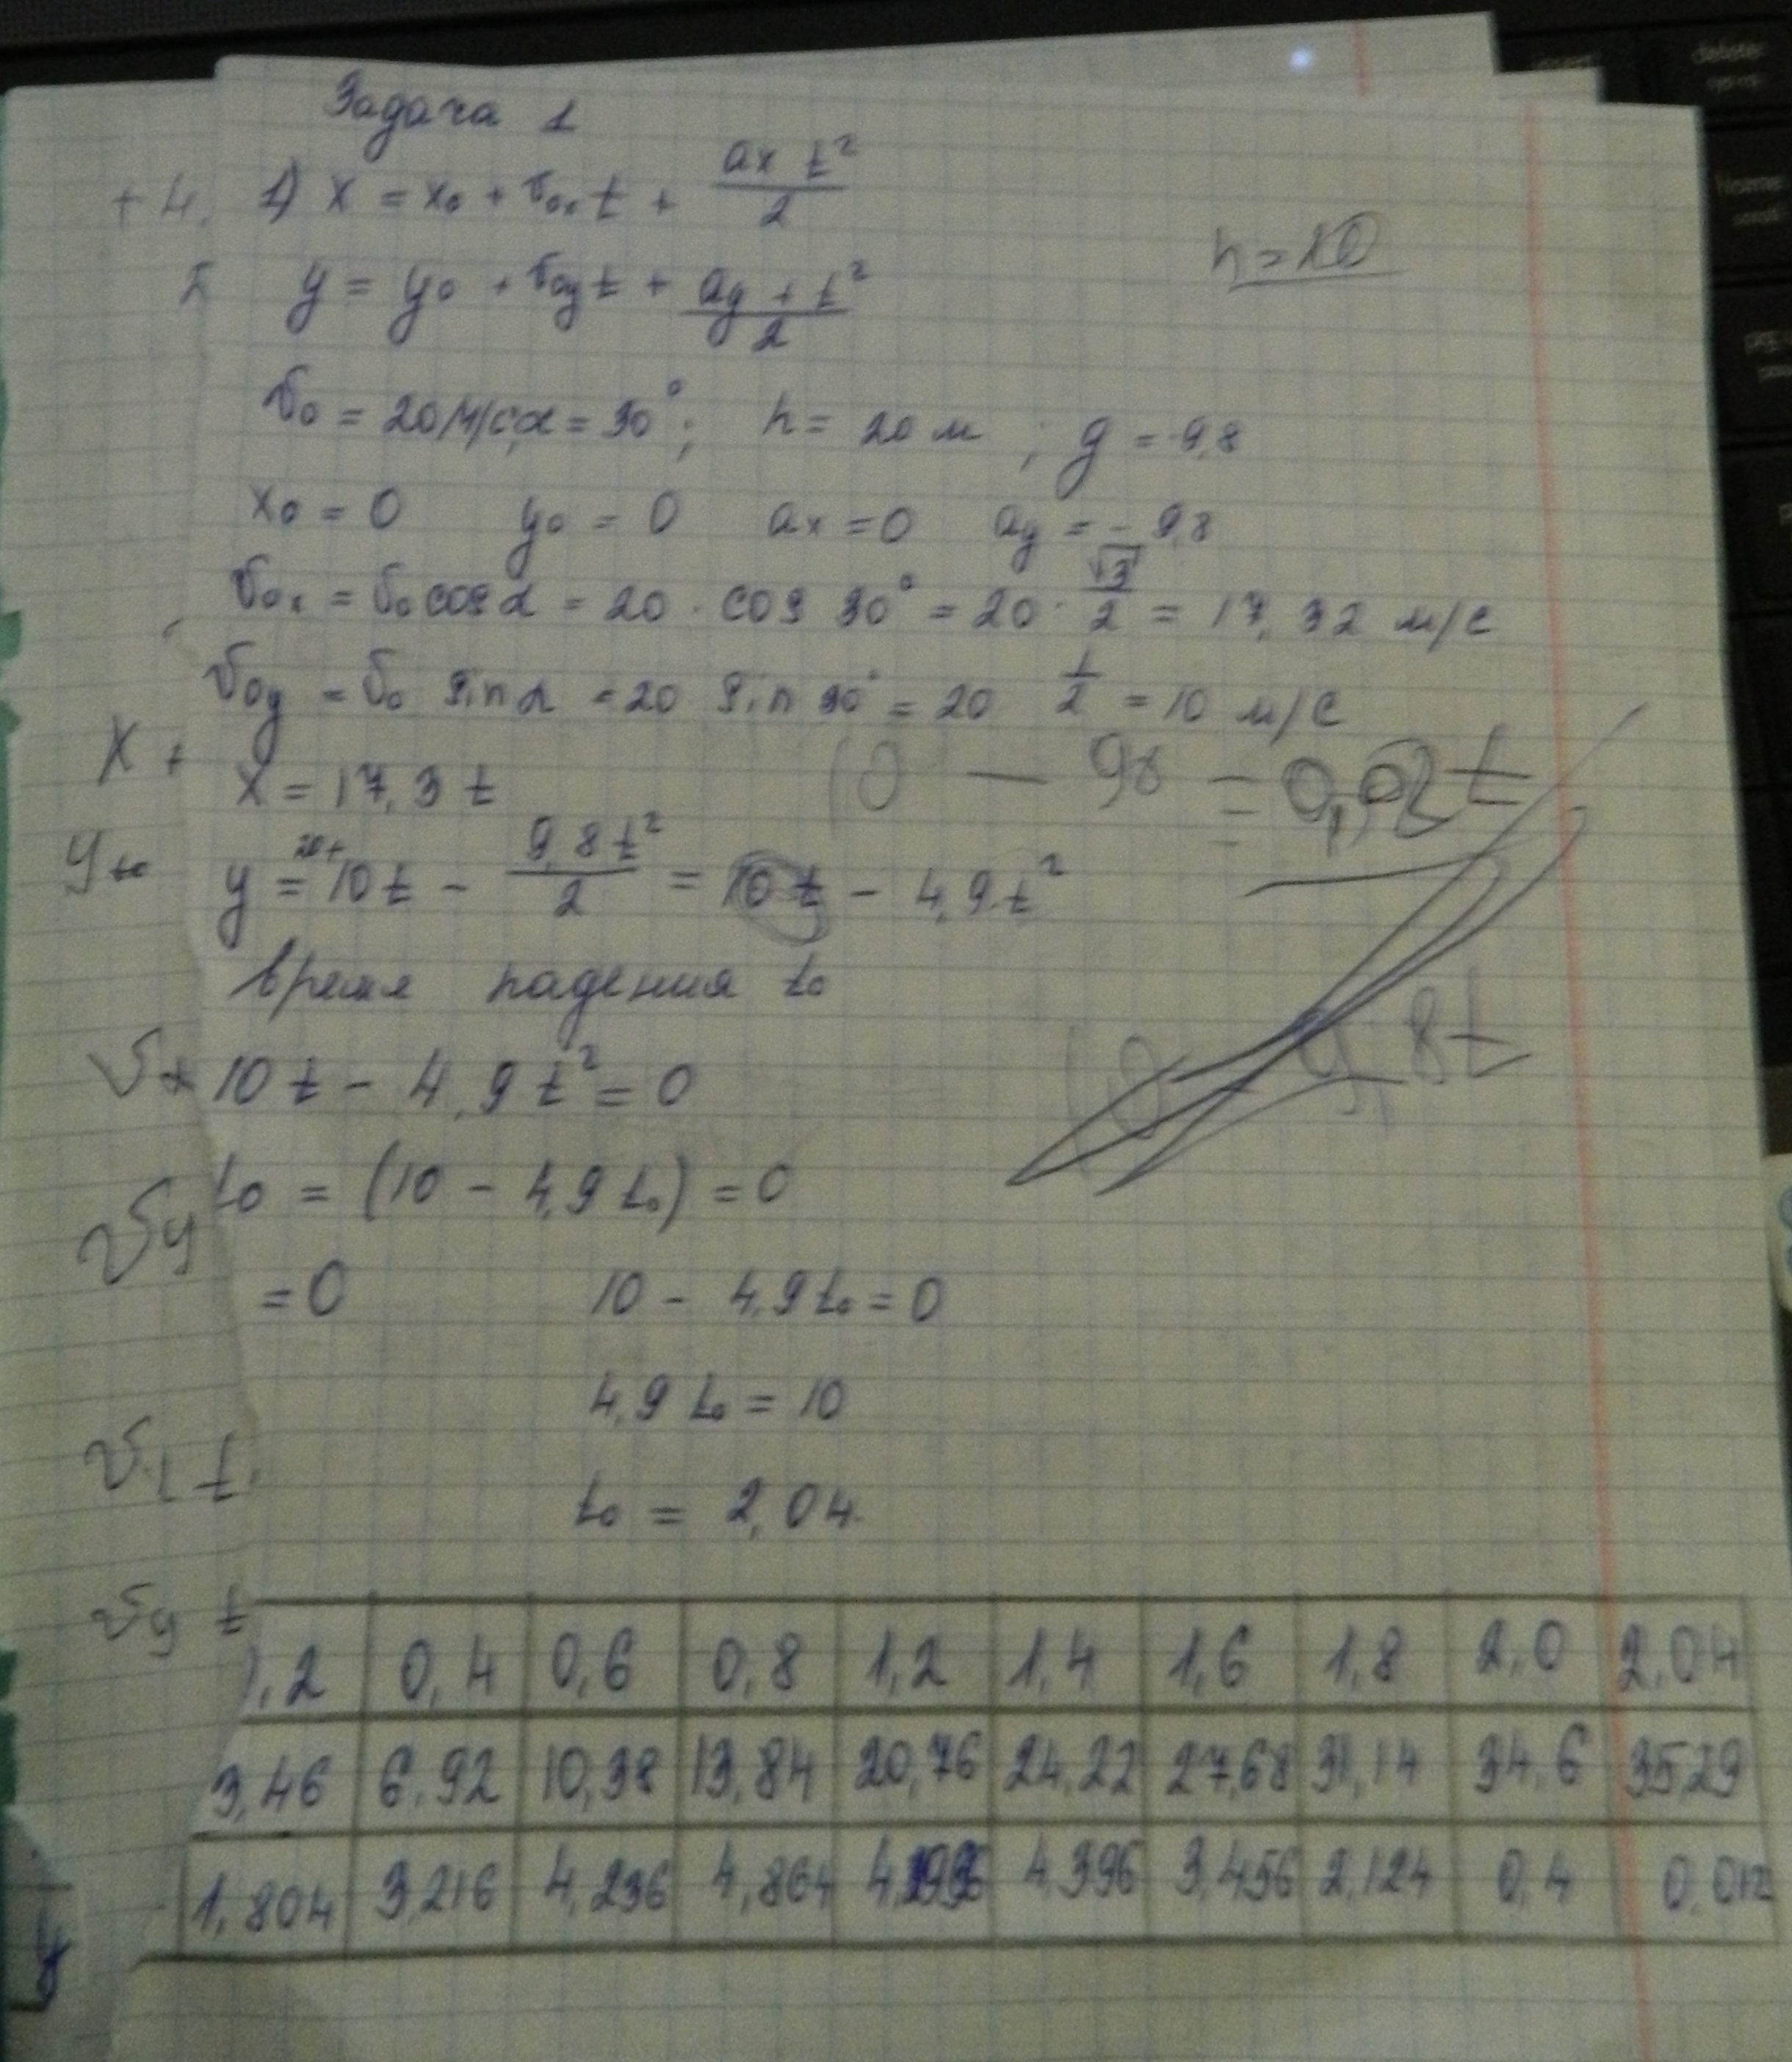 Задача 1
+ 4. 1) x = x₀ + v₀ₓt + aₓ t²/2
h = 20
y = y₀ + v₀yt + ay + t²/2
v₀ = 20 м/с; α = 30°; h = 20 м ; g = 9,8
x₀ = 0 y₀ = 0 aₓ = 0 ay = - 9,8
v₀ₓ = v₀ cos α = 20 · cos 30° = 20 · √3/2 = 17,32 м/с
v₀y = v₀ sin α = 20 sin 30° = 20 1/2 = 10 м/с
x +
10 — 98 = 0,02t
x = 17,3 t
y = 20+ 10t - 9,8t²/2 = 10t - 4,9t²
время падения t₀
10 - 9,8t
vₓ
10t - 4,9t² = 0
t₀ = (10 - 4,9t₀) = 0
vy
= 0 10 - 4,9t₀ = 0
4,9 t₀ = 10
v t
t₀ = 2,04
vy t
,2 0,4 0,6 0,8 1,2 1,4 1,6 1,8 2,0 2,04
3,46 6,92 10,38 13,84 20,76 24,22 27,68 31,14 34,6 35,29
1,804 3,216 4,236 4,864 4,396 3,456 2,124 0,4 0,012
y